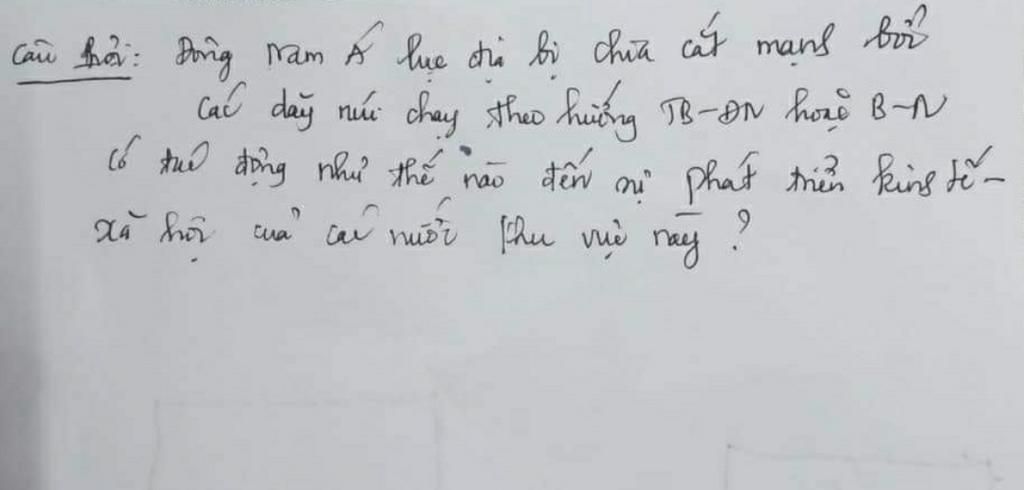 Câu hỏi: Đông Nam Á lục địa bị chia cắt mạnh bởi
các dãy núi chạy theo hướng TB-ĐN hoặc B-N
có tác động như thế nào đến sự phát triển kinh tế-
xã hội của các nước khu vực này ?